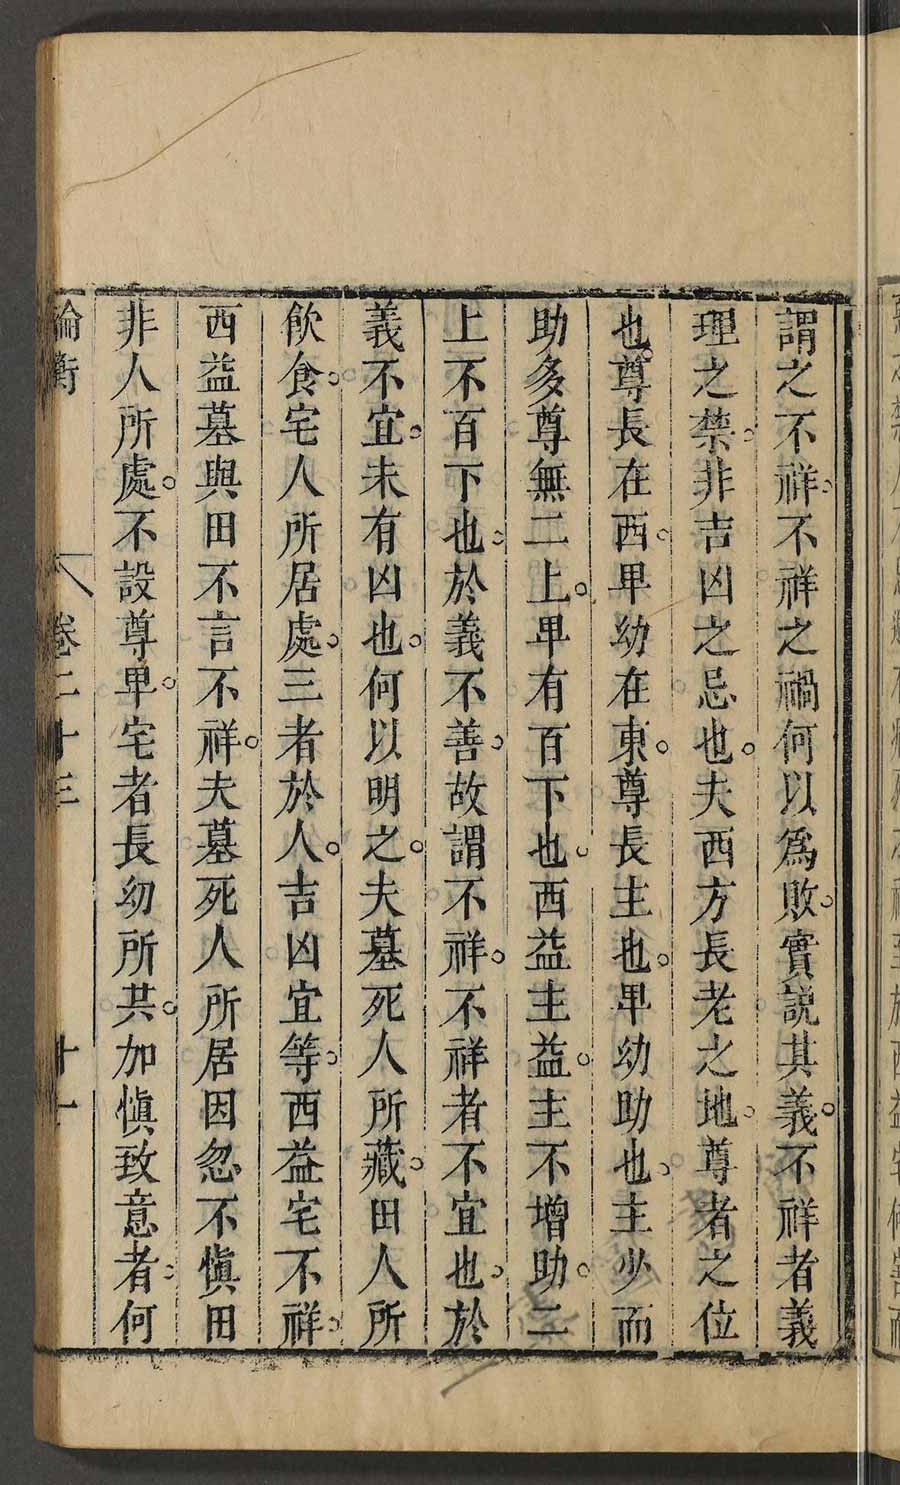 謂之不祥不祥之禍何以爲敗實説其義不祥者義
理之禁非吉凶之忌也夫西方長老之地尊者之位
也尊長在西卑幼在東尊長主也卑幼助也主少而
助多尊無二上卑有百下也西益主益主不增助二
上不百下也於義不善故謂不祥不祥者不宜也於
義不宜未有凶也何以明之夫墓死人所藏田人所
飲食宅人所居處三者於人吉凶宜等西益宅不祥
西益墓與田不言不祥夫墓死人所居因忽不慎田
非人所處不設尊卑宅者長幼所共加慎致意者何
論衡 卷二十三 十一